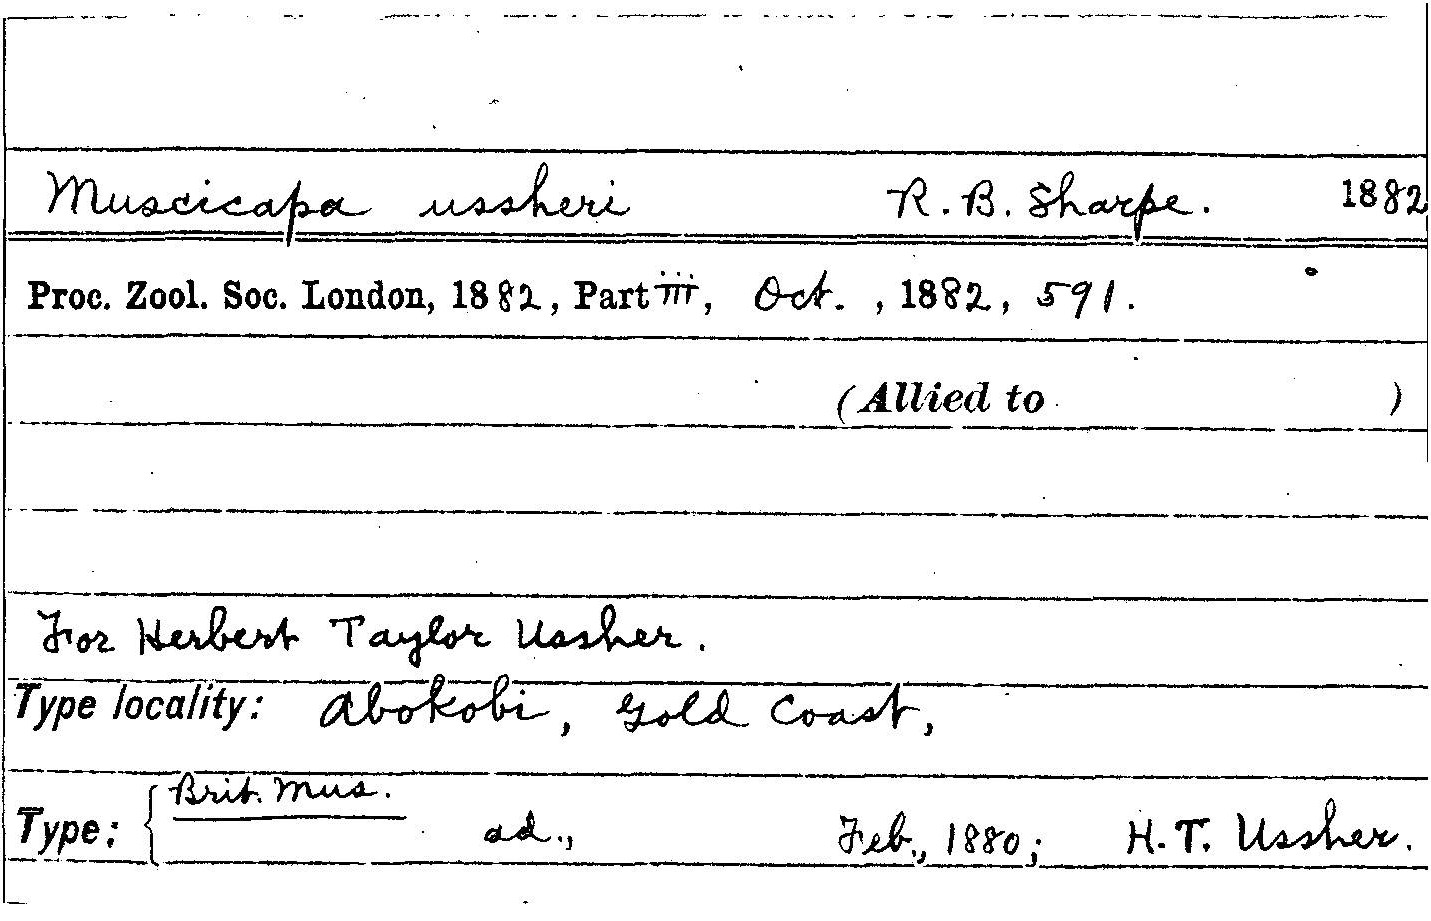 Muscicapa ussheri R. B. Sharpe. 1882
Proc. Zool. Soc. London, 1882, Part iii, Oct., 1882, 591.
(Allied to )
For Herbert Taylor Ussher.
Type locality: Abokobi, Gold Coast,
Brit. Mus.
Type: ad., Feb., 1880; H. T. Ussher.